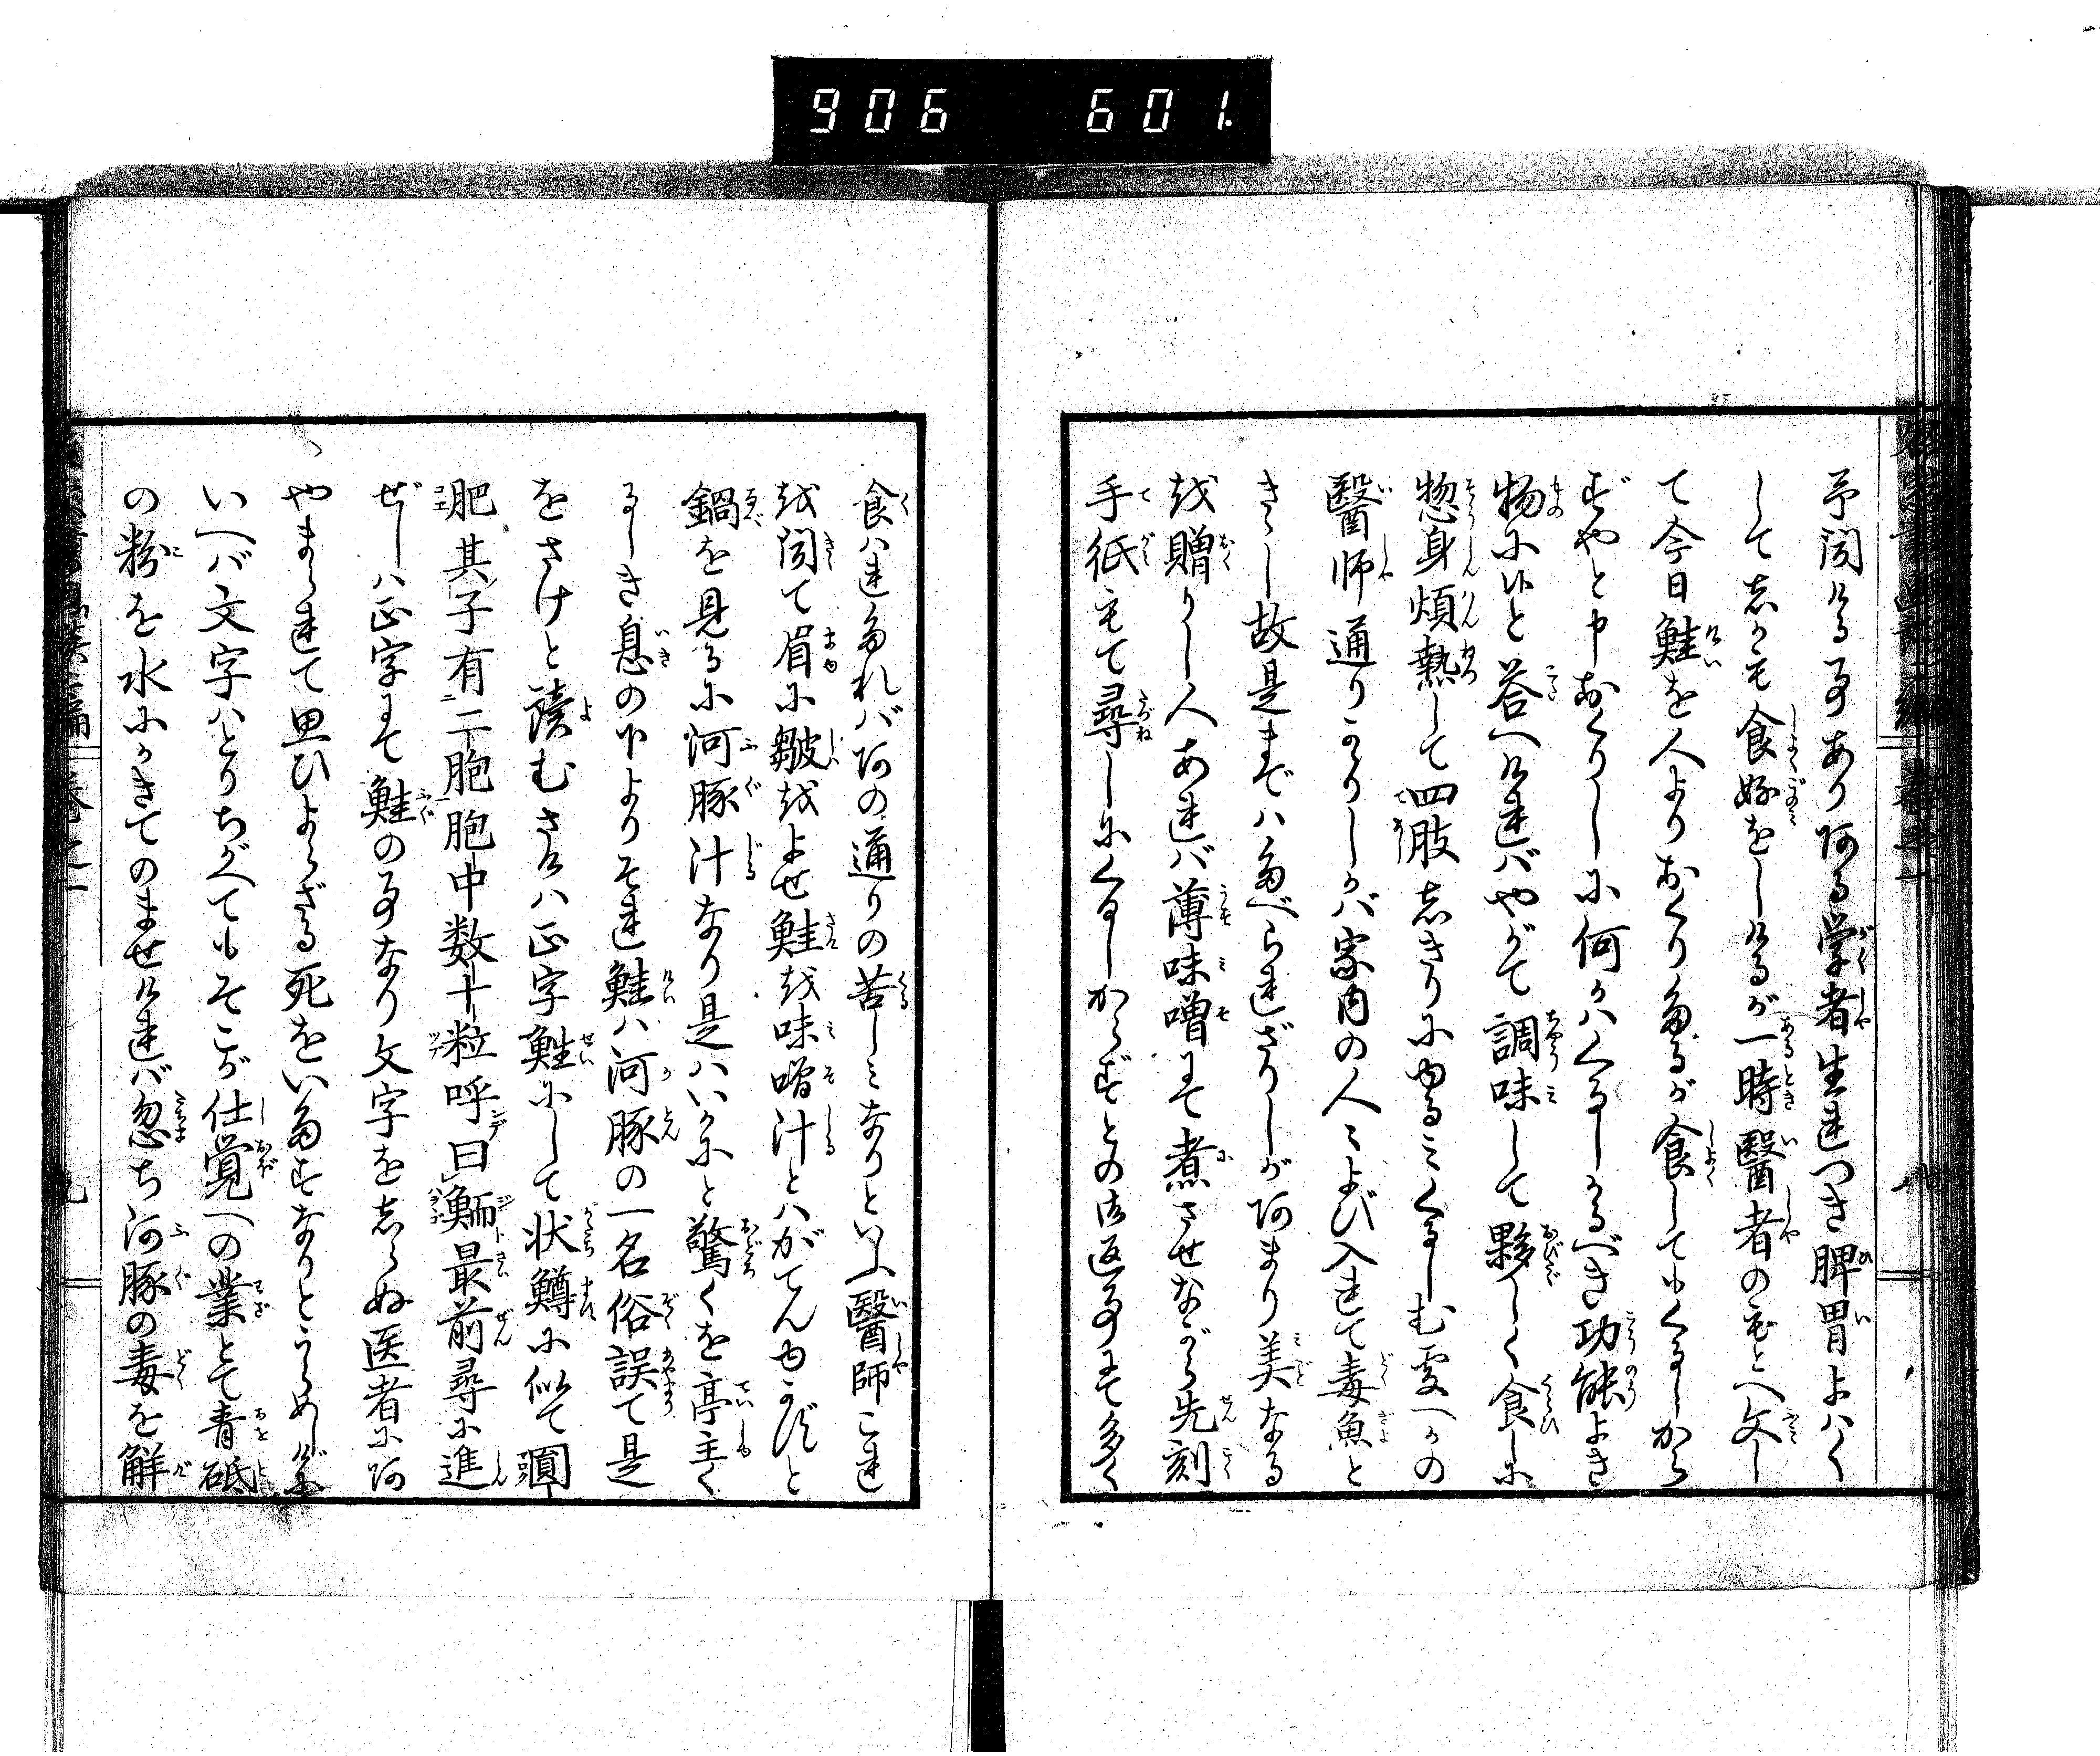 906 601.
予聞ける事あり或る学者生れつき脾胃よハく
して志かも食好をしけるが一時醫者のもとへ文し
て今日鮭を人よりおくりたるが食してもくるしから
ずやと申おくりしに何かハくるしかるべき功能よき
物に候と答へけれバやがて調味して夥しく食しに
惣身煩熱して四肢志きりにゆるミくるしむ変へかの
醫師通りかゝりしかバ家内の人々よび入れて毒魚と
きゝし故是までハたべられざりしがあまり美なる
を贈りし人あれバ薄味噌にて煮させながら先刻
手紙もて尋しにくるしからずとの御返事にて多く
食ハれたれバ此の通りの苦しミなりといふ醫師これ
を聞て眉に皺をよせ鮭を味噌汁とハがてんゆかずと
鍋を見るに河豚汁なり是ハいかにと驚くを亭主く
るしき息の下よりそれ鮭ハ河豚の一名俗誤て是
をさけと読むさけハ正字鮏にして状鱒に似て圓
肥其子有二胞胞中数十粒呼曰鮞最前尋に進
ぜしハ正字にて鮭の事なり文字を志らぬ医者にあ
やまられて思ひよらざる死をいたすなりとうらめしげに
いへバ文字ハとりちがへてもそこが仕覚への業とて青砥
の粉を水にかきてのませけれバ忽ち河豚の毒を解